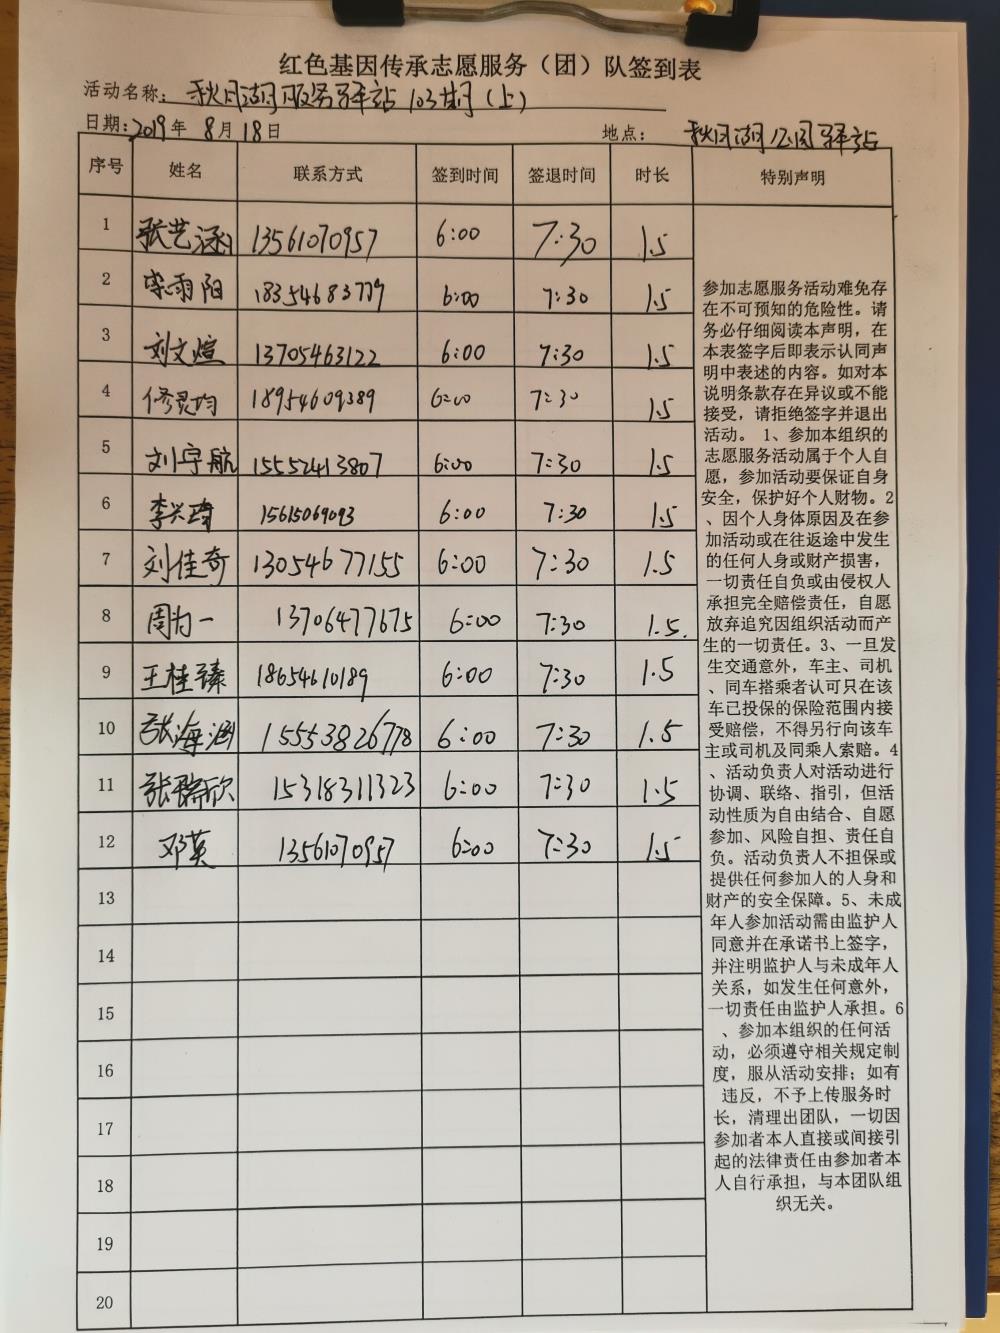 红色基因传承志愿服务（团）队签到表
活动名称：秋月湖服务驿站103期（上）
日期：2019年8月18日 地点：秋月湖公园驿站
序号 姓名 联系方式 签到时间 签退时间 时长 特别声明
1 张艺涵 13561070957 6:00 7:30 1.5
2 李雨阳 18354683779 6:00 7:30 1.5
3 刘文煊 13705463122 6:00 7:30 1.5
4 修灵均 18954609389 6:00 7:30 1.5
5 刘宇航 15552413807 6:00 7:30 1.5
6 李兴琦 15615069093 6:00 7:30 1.5
7 刘佳奇 13054677155 6:00 7:30 1.5
8 周为一 13706477675 6:00 7:30 1.5
9 王桂臻 18654610189 6:00 7:30 1.5
10 张海涵 15553826778 6:00 7:30 1.5
11 张瑞欣 15318311323 6:00 7:30 1.5
12 邓英 13561070957 6:00 7:30 1.5
13
14
15
16
17
18
19
20
参加志愿服务活动难免存
在不可预知的危险性。请
务必仔细阅读本声明，在
本表签字后即表示认同声
明中表述的内容。如对本
说明条款存在异议或不能
接受，请拒绝签字并退出
活动。 1、参加本组织的
志愿服务活动属于个人自
愿，参加活动要保证自身
安全，保护好个人财物。2
、因个人身体原因及在参
加活动或在往返途中发生
的任何人身或财产损害，
一切责任自负或由侵权人
承担完全赔偿责任，自愿
放弃追究因组织活动而产
生的一切责任。3、一旦发
生交通意外，车主、司机
、同车搭乘者认可只在该
车已投保的保险范围内接
受赔偿，不得另行向该车
主或司机及同乘人索赔。4
、活动负责人对活动进行
协调、联络、指引，但活
动性质为自由结合、自愿
参加、风险自担、责任自
负。活动负责人不担保或
提供任何参加人的人身和
财产的安全保障。5、未成
年人参加活动需由监护人
同意并在承诺书上签字，
并注明监护人与未成年人
关系，如发生任何意外，
一切责任由监护人承担。6
、参加本组织的任何活
动，必须遵守相关规定制
度，服从活动安排；如有
违反，不予上传服务时
长，清理出团队，一切因
参加者本人直接或间接引
起的法律责任由参加者本
人自行承担，与本团队组
织无关。